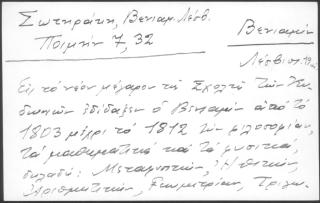 Σωτηράκη, Βενιαμ. Λέσβ.
Ποιμήν 7, 32
Βενιαμίν
Λέσβιος
Εις το νέον μέγαρον της Σχολής των Κυ-
δωνιών εδίδαξεν ο Βενιαμίν από το
1803 μέχρι το 1812 την φιλοσοφίαν,
τα μαθηματικά και τα φυσικά,
δηλαδή: Μεταφυσικήν, Ηθικήν,
Αριθμητικήν, Γεωμετρίαν, Τριγω-